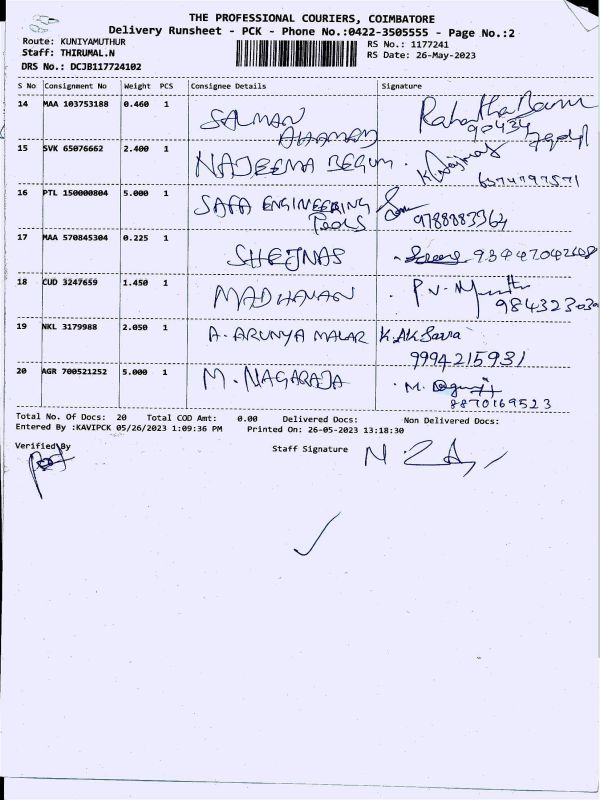 THE PROFESSIONAL COURIERS, COIMBATORE
Delivery Runsheet - PCK - Phone No.:0422-3505555 - Page No.:2
Route: KUNIYAMUTHUR
RS No.: 1177241
Staff: THIRUMAL.N
RS Date: 26-May-2023
DRS No.: DCJB117724102
S No Consignment No Weight PCS Consignee Details Signature
14 MAA 103753188 0.460 1 SALMAN
AHAMAD 90434
15 SVK 65076662 2.400 1 NAJEEMA BEGUM.
16 PTL 150000804 5.000 1 SAFA ENGINEERING
9788883364
17 MAA 570845304 0.225 1 SHEJNAS
18 CUD 3247659 1.450 1 MADHAVAN P.V.
19 NKL 3179988 2.050 1 A. ARUNYA MALAR
9994215931
20 AGR 700521252 5.000 1 M. NAGARAJA M.
8870169523
Total No. Of Docs: 20 Total COD Amt: 0.00 Delivered Docs: Non Delivered Docs:
Entered By :KAVIPCK 05/26/2023 1:09:36 PM Printed On: 26-05-2023 13:18:30
Verified By
Staff Signature